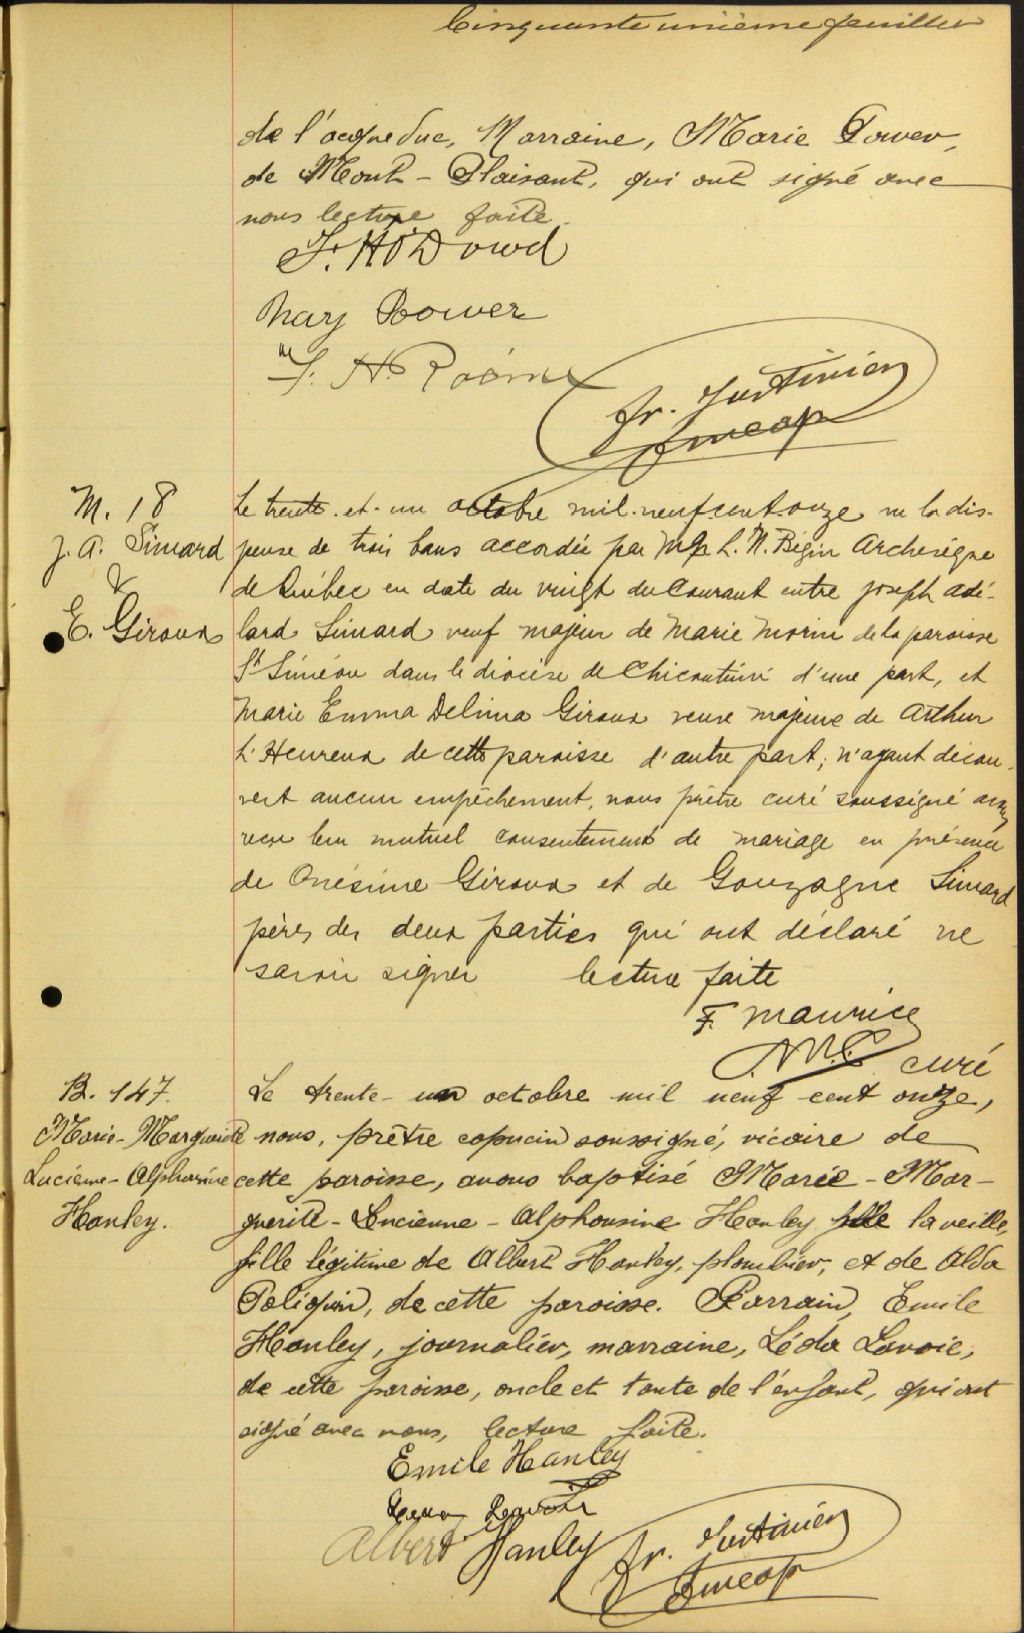 Cinquante unième feuillet
de l'acqueduc, Marraine, Marie Power,
de Mont-Plaisant, qui ont signé avec
nous lecture faite.
F. H. O'Dowd
Mary Power
F. H.
fr. Justinien
M. 18
J. A. Simard
&
E. Giroux
Le trente-et-un octobre mil-neuf-cent-onze vu la dis-
pense de trois bans accordée par Mgr L. N. Bégin Archevêque
de Québec en date du vingt du courant entre Joseph Adé-
lard Simard veuf majeur de Marie Morin de la paroisse
St Siméon dans le diocèse de Chicoutimi d'une part, et
Marie Emma Delima Giroux veuve majeure de Arthur
L'Heureux de cette paroisse d'autre part; n'ayant décou-
vert aucun empêchement, nous prêtre curé soussigné avons
reçu leur mutuel consentement de mariage en présence
de Onésime Giroux et de Gonzague Simard
pères des deux parties qui ont déclaré ne
savoir signer lecture faite
F. Maurice
curé
B. 147.
Marie-Marguerite
Lucienne-Alphonsine
Hanley.
Le trente-un octobre mil neuf cent onze,
nous, prêtre capucin soussigné, vicaire de
cette paroisse, avons baptisé Marie-Mar-
guerite-Lucienne-Alphonsine Hanley née la veille,
fille légitime de Albert Hanley, plombier, et de Alda
Poliquin, de cette paroisse. Parrain, Emile
Hanley, journalier, marraine, Léda Lavoie,
de cette paroisse, oncle et tante de l'enfant, qui ont
signé avec nous, lecture faite.
Emile Hanley
Albert Hanley
fr. Justinien